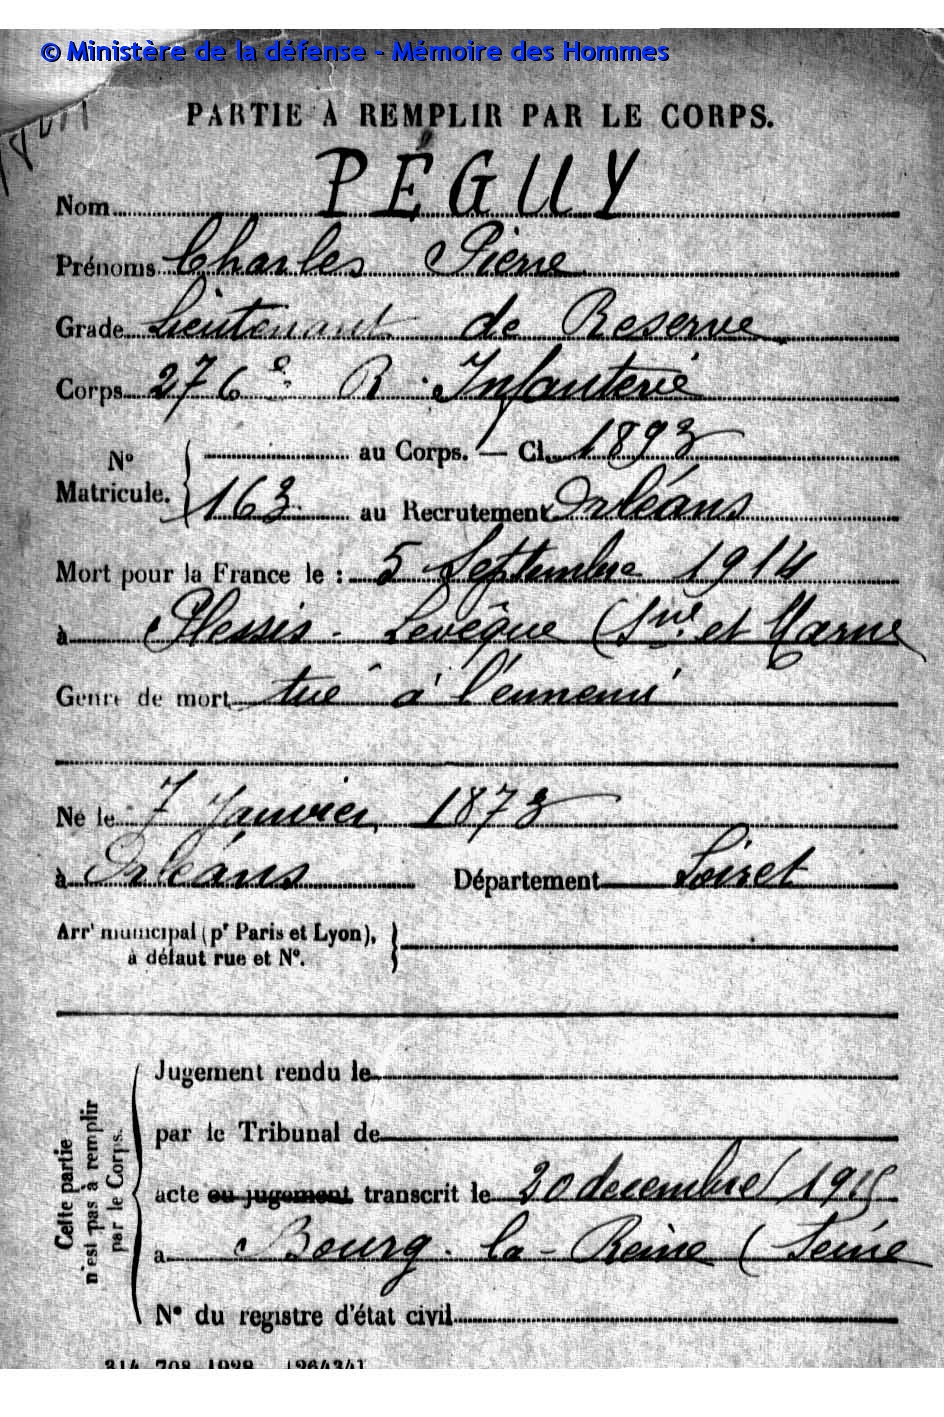 © Ministère de la défense - Mémoire des Hommes
PARTIE À REMPLIR PAR LE CORPS.
Nom PÉGUY
Prénoms Charles Pierre
Grade Lieutenant de Reserve
Corps 276e R. Infanterie
N° Matricule. { au Corps. — Cl. 1893
163 au Recrutement Orléans
Mort pour la France le : 5 Septembre 1914
à Plessis - Levêque (Sne et Marne
Genre de mort tué à l'ennemi
Né le 7 Janvier 1873
à Orléans Département Loiret
Arrt municipal (pr Paris et Lyon),
à défaut rue et N°.
Cette partie
n'est pas à remplir
par le Corps.
Jugement rendu le
par le Tribunal de
acte ou jugement transcrit le 20 decembre 1915
à Bourg-la-Reine (Seine
N° du registre d'état civil
314 708 1928 [26434]